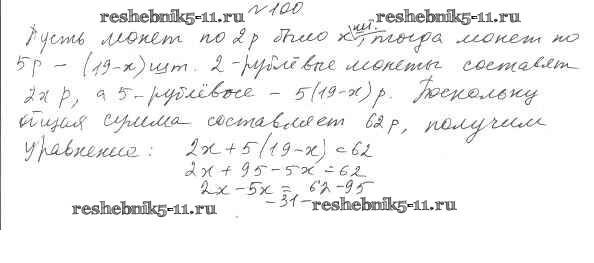 № 100
reshebnik5-11.ru reshebnik5-11.ru
Пусть монет по 2р было x шт., тогда монет по
5р – (19-x) шт. 2-рублёвые монеты составят
2x р, а 5-рублёвые – 5(19-x) р. Поскольку
общая сумма составляет 62р, получим
уравнение: 2x+5(19-x)=62
2x+95-5x=62
2x-5x= 62-95
reshebnik5-11.ru -31- reshebnik5-11.ru